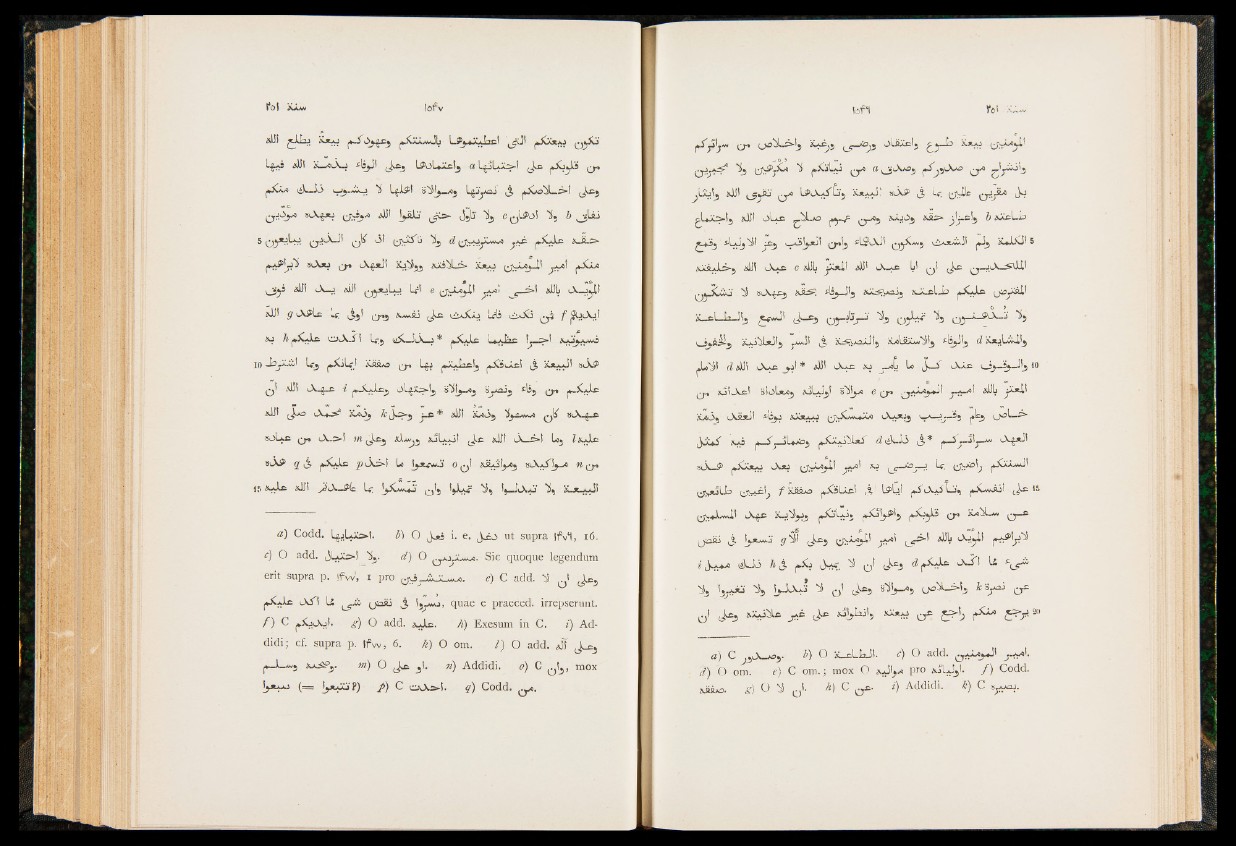 سنة ٢٥١ ١٥٤٦
المؤمنين بيعة طـوع واعتقاد ورضـى ورغبة واخـلاص من سرائركم
وانشراح من صدوركم وصدق a من نيّاتكم لا مُكْرَهين ولا مجبرين
بل مقرّين عالمين بما فى هذه البيعة وتأكيدها من تقوى الله وايثار
طاعته b واعزاز حقّه ودينه ومن عموم صلاح عباد الله واجتماع
5 الكلمة ولمّ الشعث وسكون الدهماء وامن العواقب وعزّ الاولياء وقمع
الملحدين على ان ابا عبد الله المعتزّ بالله c عبد الله وخليفته
المفترض عليكم طاعته ونصيحته والوفاء بحقّه وعهده لا تشكّون
ولا تدهنون ولا تميلون ولا ترتابون وعلى السمع والطاعة
والمشايعة d والوفاء والاستقامة والنصيحة فى السرّ والعلانية والخفوف
10 والوقوف عند كلّ ما يأمر به عبد الله * ابو عبد الله d الامام
المعتزّ بالله امير المؤمنين e من موالاة اوليائه ومعاداة اعدائه من
خاصّ وعامّ وقريب وبعيد متمسّكين ببيعته بوفاء العقد وذمّة
العهد سرائركم * فى ذلك d كعلانيتكم وضمائركم فيه كمثل
السنتكم راضين بما يرضى به امير المؤمنين بعد بيعتكم هذه
15 على انفسكم وتأكيدكم ايّاها فى اعناقكم صفقة f راغبين طائعين
عن سلامة من قلوبكم واهوائكم ونيّاتكم وبولاية عهد المسلمين
لابراهيم المؤيّد بالله اخى امير المؤمنين وعلى الّا g تسعوا فى نقض
شىء ممّا اكّد عليكم d وعلى ان لا يميل بكم فى h ذلك مميل i
عن نصرة k واخلاص وموالاة وعلى ان لا تبدّلوا ولا تغيروا ولا
20 يرجع منكم راجع عن بيعته وانطوائه على غير علانيته وعلى ان
a) C وصدور. b) O الطاعة. c) O add. امير المؤمنين.
d) O om. e) C om.; mox O مواليه pro اوليائه. f) Codd.
صفقه. g) O ان لا. h) C عن. i) Addidi. k) C بصيرة.
سنة ٢٥١ ١٥٤٧
تكون بيعتكم التى اعطيتموها بالسنتكم وعهودكم بيعة يطلع الله
من قلوبكم على اجتبائها a واعتمادها وعلى الوفاء بذمّة الله فيها
وعلى اخلاصكم فى نصرتها وموالاة اهلها لا يشوب ذلك منكم
نفاق b ولا ادهان c ولا تاوّل حتى تلقوا الله موفين بعهده مؤدّين
5 حقّه عليكم غير مستريبين d ولا ناكثين اذ كان الذين يبايعون
منكم امير المؤمنين بيعة خلافته وولاية العهد من بعده لابراهيم
المؤيّد بالله اخى امير المؤمنين e انما يبايعون الله يد الله فوق
ايديهم f فمن نكث فانما ينكث على نفسه ومن اوفى بما عاهد g الله
فسيؤتيه اجرا عظيما عليكم * بذلك وما اكّدت عليكم h به
10 هذه البيعة فى اعناقكم واعطيتم بها من صفقة ايمانكم وما اشترط
عليكم من وفاء ونصرة وموالاة واجتهاد وعليكم i عهد الله ان
عهده كان مسؤولا وذمّة الله * عزّ وجلّ k وذمّة محمد صلّى الله
عليه l وما اخذ الله على انبيائه ورسله وعلى m احد من عباده
من n مواكيده ومواثيقه ان o تسمعوا ما اخذ p عليكم فى q هذه
15 البيعة ولا تبدّلوا ولا تميلوا وان تمسّكوا بما عاهدتم الله عليه
a) Codd. احتبايها. b) O فعل i. e. دغل ut supra ١٤٧٦, 16.
c) O add. ولا احتيال. d) O مستزيدين. Sic quoque legendum
erit supra p. ١٤٧٧, 1 pro مستشرقين. e) C add. وعلى ان لا
تسرّوا فى نقض شى ممّا اكد عليكم, quae e praeced. irrepserunt.
f) C ايديكم. g) O add. عليه. h) Exesum in C. i) Ad-
didi; cf. supra p. ١٤٧٧, 6. k) O om. l) O add. وعلى آله
وصحبه وسلم. m) O او على. n) Addidi. o) C وان, mox
سبعوا (= تتبعوا?) p) C احدت. q) Codd. من.